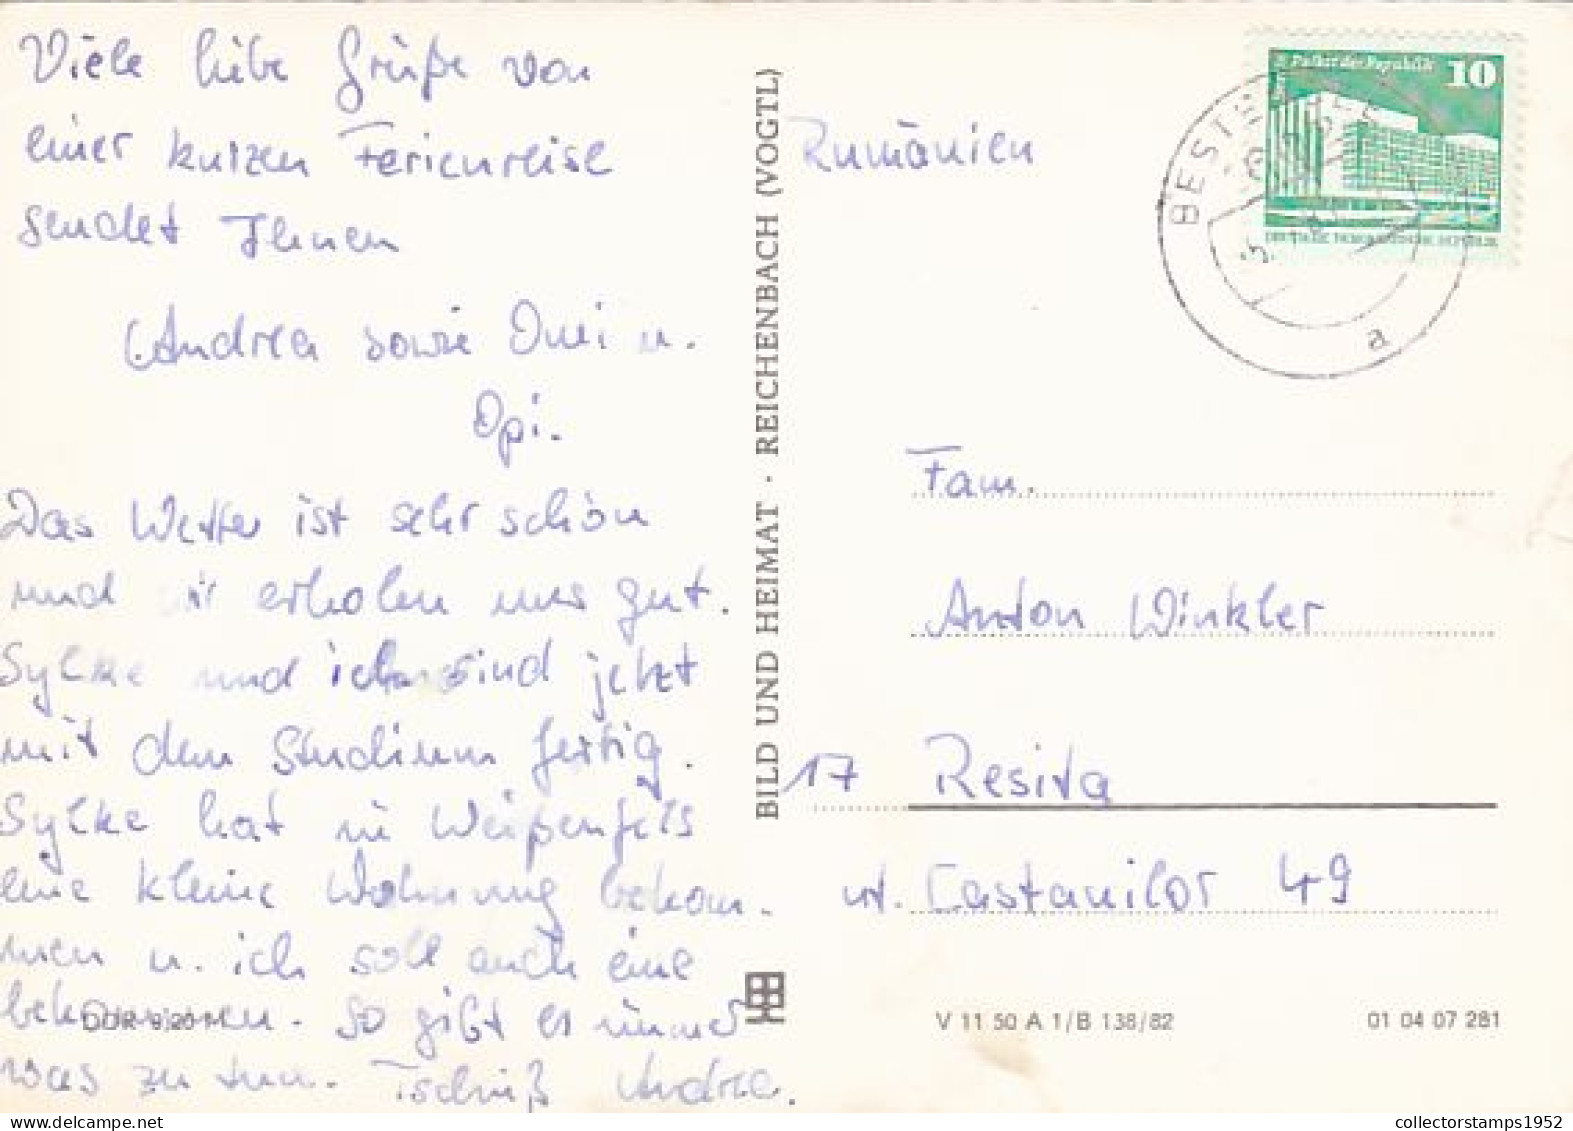 Viele liebe Grüße von
einer kurzen Ferienreise
sendet Ihnen
Andrea sowie Omi u.
Opi.
Das Wetter ist sehr schön
und wir erholen uns gut.
Sylke und ich sind jetzt
mit dem Studium fertig.
Sylke hat in Weißenfels
eine kleine Wohnung bekom-
men u. ich soll auch eine
bekommen. So gibt es immer
was zu tun. Tschüß Andrea.
BILD UND HEIMAT · REICHENBACH (VOGTL)
Rumänien
Palast der Republik 10
DEUTSCHE DEMOKRATISCHE REPUBLIK
a
Fam.
Anton Winkler
17 Resita
Castanilor 49
V 11 50 A 1/B 138/82
01 04 07 281
collectorstamps1952